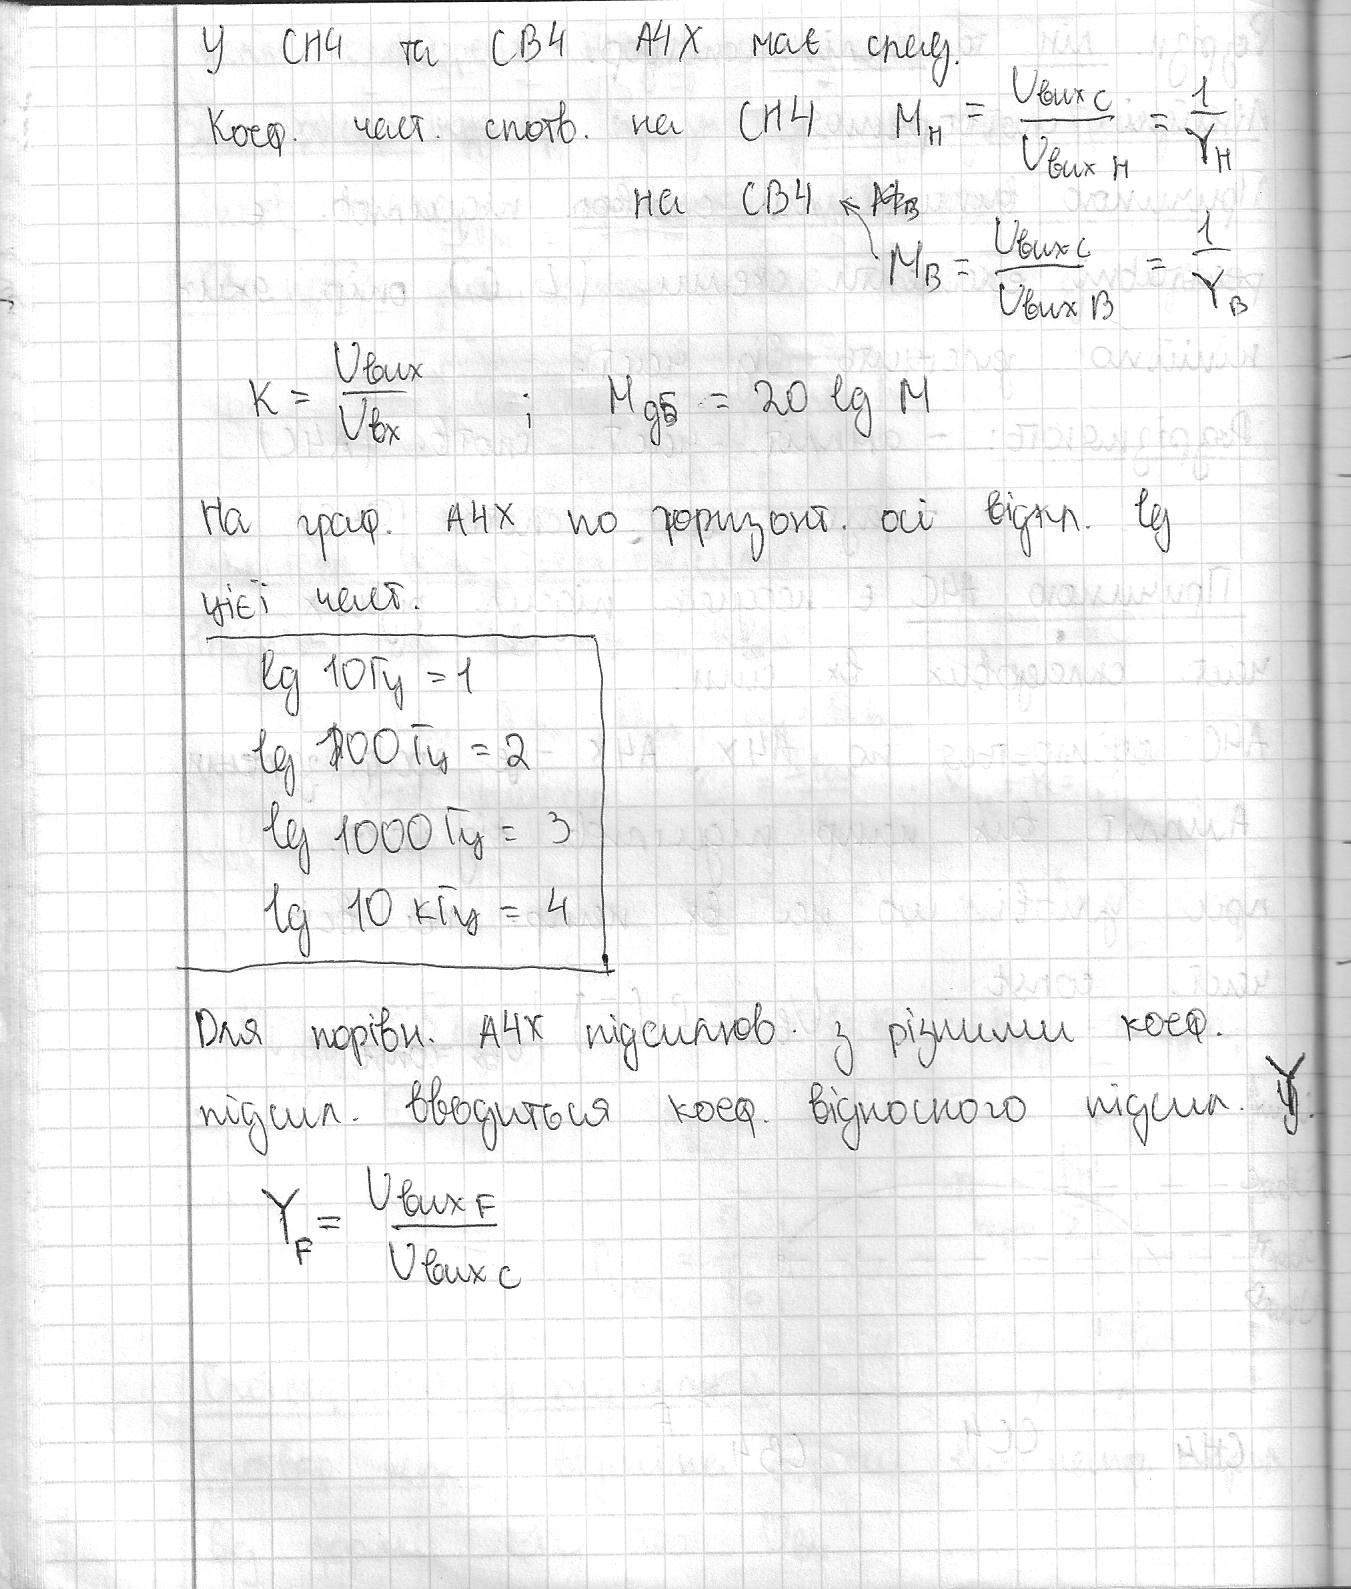 У СНЧ та СВЧ АЧХ має спад.
Коеф. част. спотв. на СНЧ Mн = Uвих с / Uвих н = 1 / Yн
на СВЧ
Mв = Uвих с / Uвих В = 1 / Yв
K = Uвих / Uвх ; Mдб = 20 lg M
На граф. АЧХ по горизонт. осі відкл. lg
цієї част.
lg 10Гц = 1
lg 100Гц = 2
lg 1000Гц = 3
lg 10 кГц = 4
Для порівн. АЧХ підсилюв. з різними коеф.
підсил. вводиться коеф. відносного підсил. Y.
YF = Uвих F / Uвих с